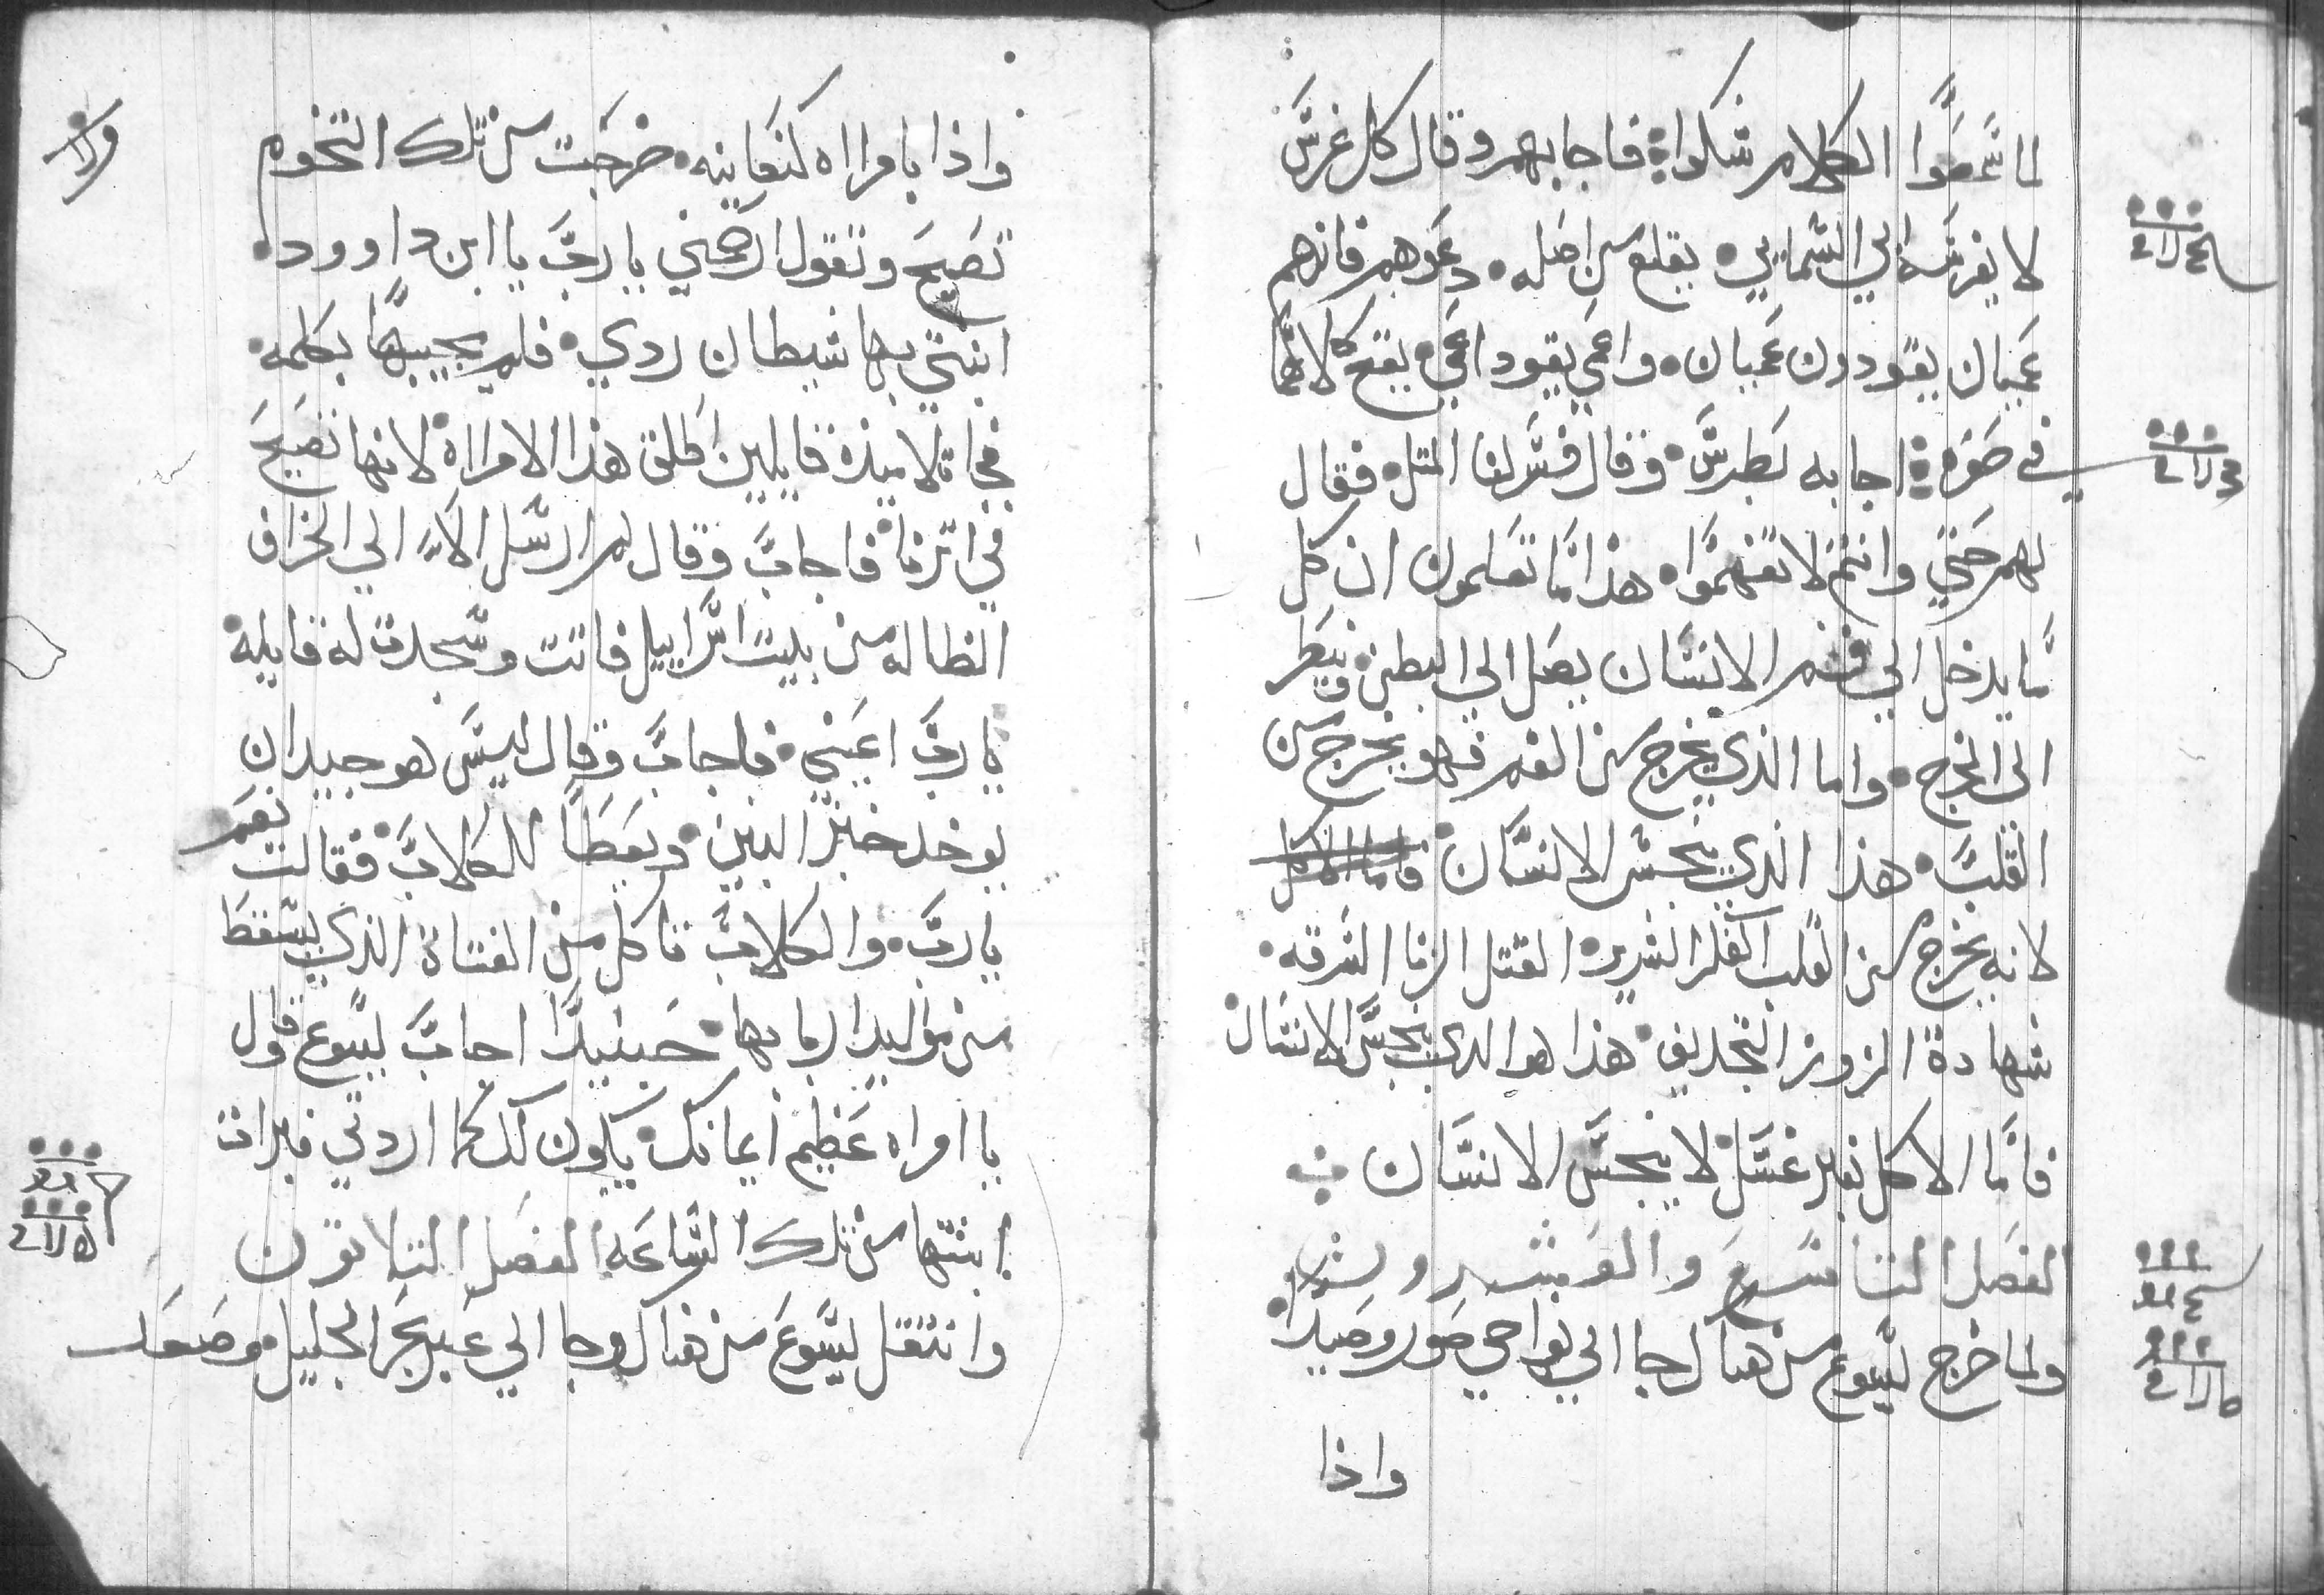 لما سمعوا الكلام شكوا فاجابهم وقال كل غرس
لا يغرسه ابي السمايي يقلع من اصله دعوهم فانهم
عميان يقودون عميان واعمي يقود اعمي يقع كلاهما
في حفره اجابه بطرس وقال فسر لنا المتل فقال
لهم حتي وانتم لا تفهموا هذا اما تعلمون ان كل
ما يدخل الي فم الانسان يصل الي البطن
الي المخرج واما الذي يخرج من الفم فهو يخرج من
القلب هذا الذي ينجس الانسان فاما الاكل
لانه يخرج من القلب الفكر الشرير القتل الزنا السرقه
شهادة الزور التجديف هذا هو الدي ينجس الانسان
فاما الاكل بغير غسل لا ينجس الانسان
الفصل التاسع والعشرون
ولما خرج يسوع من هناك جا الي نواحي صور وصيدا
واذا
واذا بامراه كنعانيه خرجت من تلك التخوم
تصيح وتقول ارحمني يا رب يا ابن داوود
ابنتي بها شيطان ردي فلم يجيبها بكلمه
فجا تلاميذه قايلين اطلق هذا الامراه لانها تصيح
في اترنا فاجاب وقال لم ارسل الا الي الخراف
الظاله من بيت اسراييل فاتت وسجدت له قايله
يا رب اعيني فاجاب وقال ليس هو جيد ان
يوخد خبز البنين ويعطا للكلاب فقالت نعم
يا رب والكلاب تاكل من الفتاة الذي يسقط
من موايد اربابها حينيدا اجاب يسوع قال
يا امراه عظيم ايمانك يكون لك كما اردتي فبرات
ابنتها من تلك الساعه الفصل التلاتون
وانتقل يسوع من هناك وجا الي عبر بحر الجليل وصعد